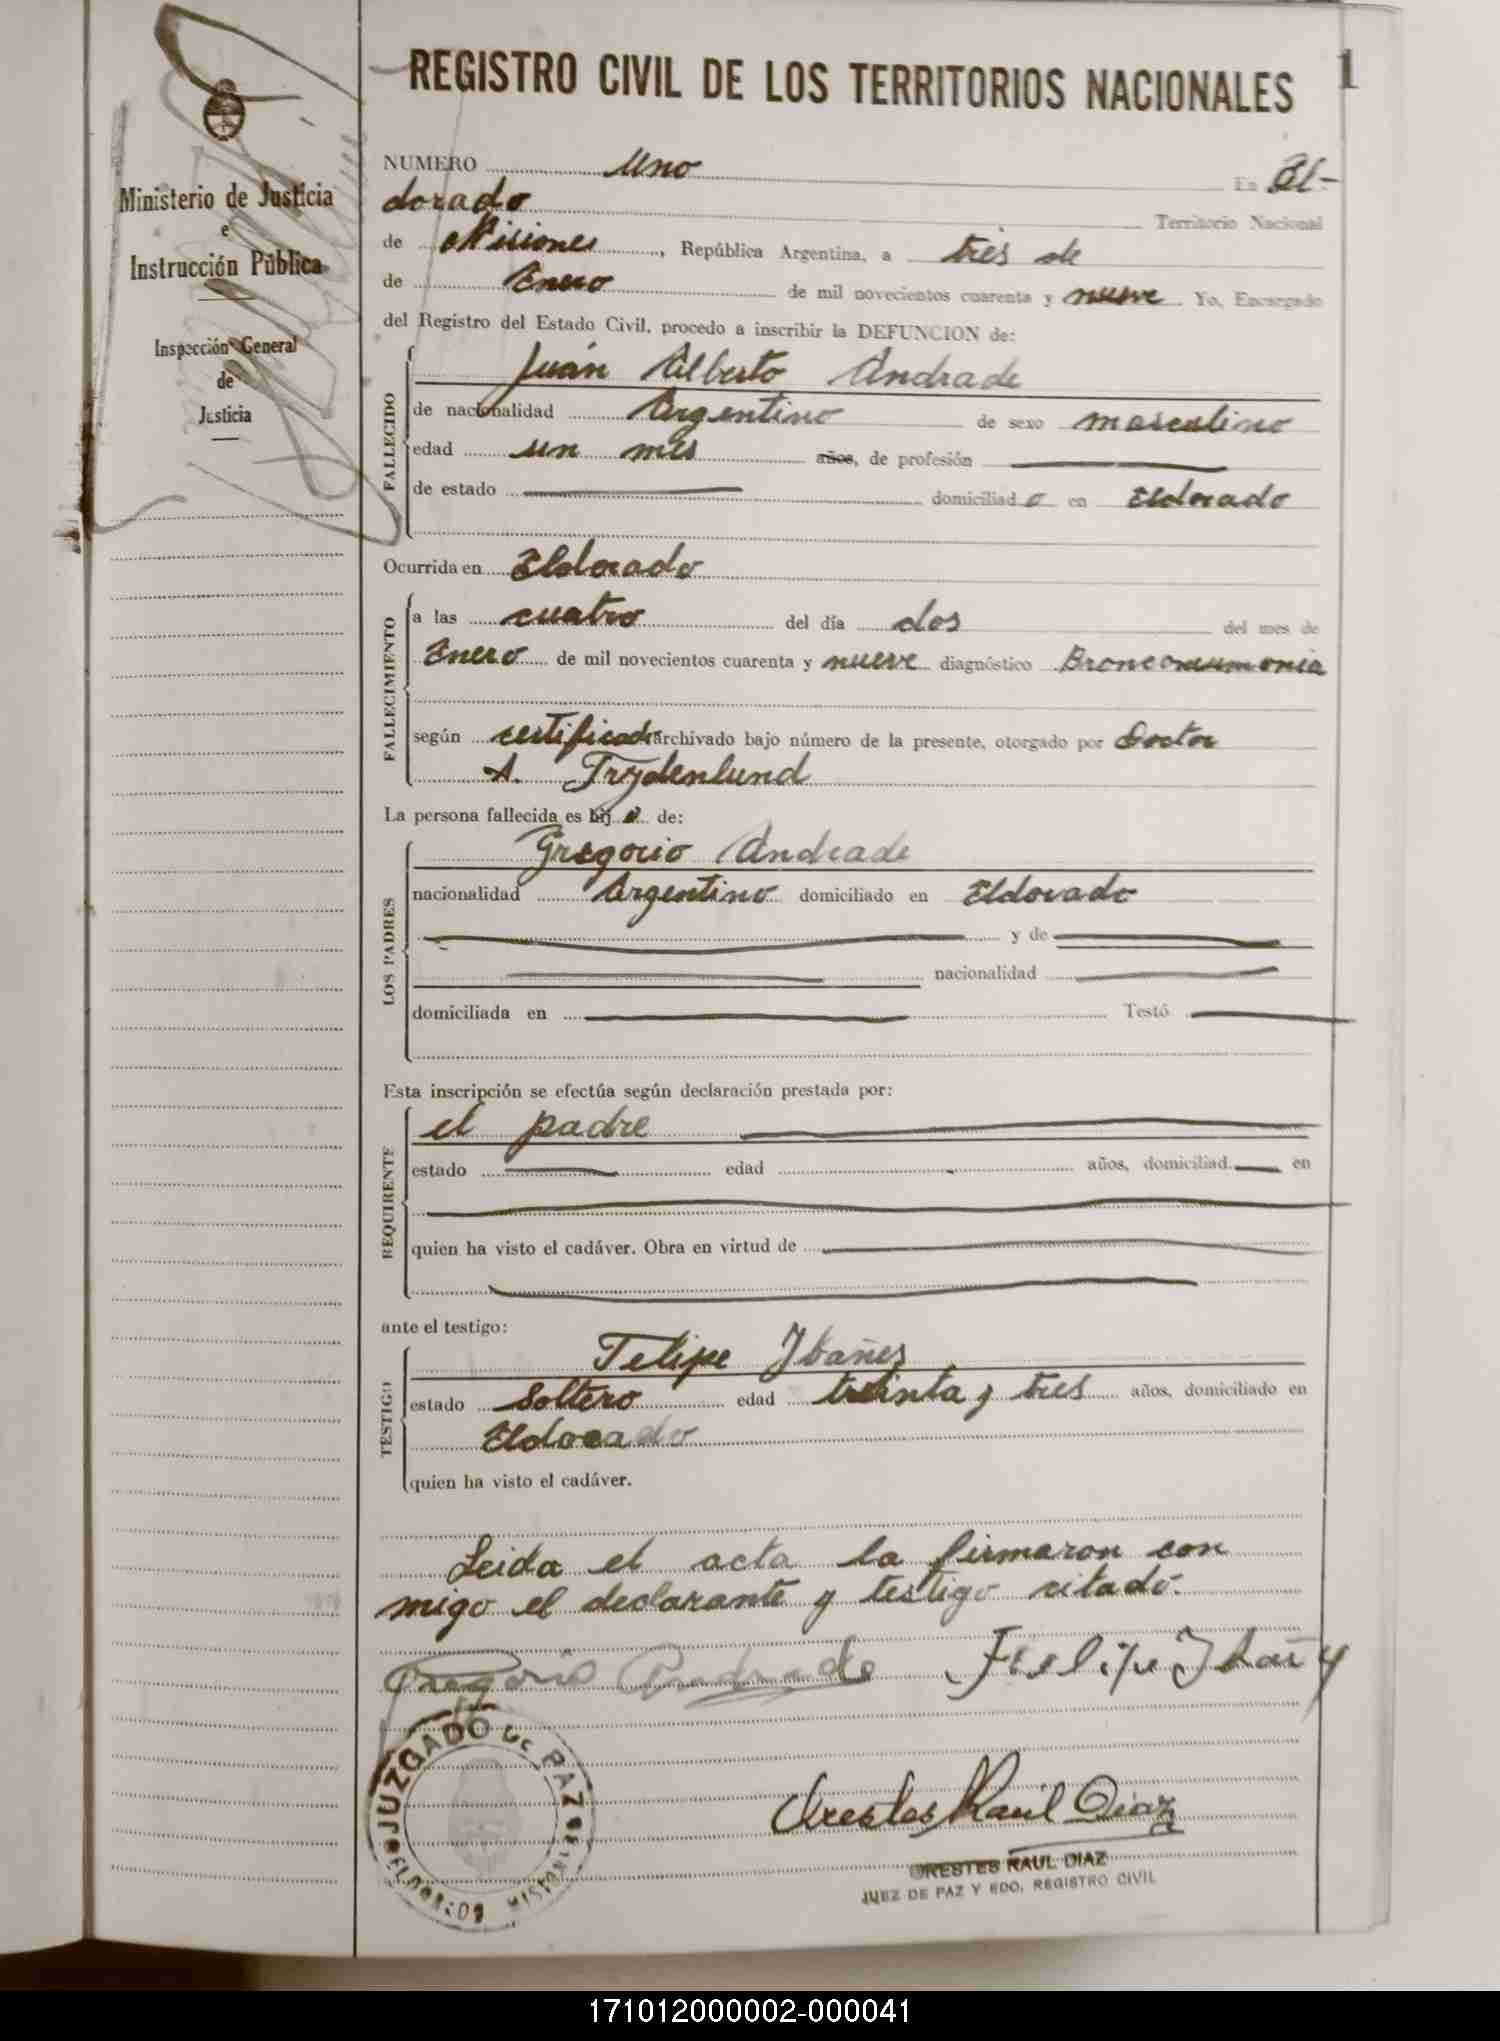 1
REGISTRO CIVIL DE LOS TERRITORIOS NACIONALES
Ministerio de Justicia
e
Instrucción Pública
Inspección General
de
Justicia
NUMERO Uno En El-
dorado Territorio Nacional
de Misiones, República Argentina, a tres de
de Enero de mil novecientos cuarenta y nueve Yo, Encargado
del Registro del Estado Civil, procedo a inscribir la DEFUNCION de:
FALLECIDO
Juan Alberto Andrade
de nacionalidad Argentino de sexo masculino
edad un mes años, de profesión
de estado domiciliado en Eldorado
Ocurrida en Eldorado
FALLECIMIENTO
a las cuatro del día dos del mes de
Enero de mil novecientos cuarenta y nueve diagnóstico Bronconeumonia
según certificado archivado bajo número de la presente, otorgado por Doctor
A. Trydenlund
La persona fallecida es hijo de:
LOS PADRES
Gregorio Andrade
nacionalidad Argentino domiciliado en Eldorado
y de
nacionalidad
domiciliada en Testó
Esta inscripción se efectúa según declaración prestada por:
REQUIRENTE
el padre
estado edad años, domiciliad en
quien ha visto el cadáver. Obra en virtud de
ante el testigo:
TESTIGO
Felipe Ibañez
estado Soltero edad treinta y tres años, domiciliado en
Eldorado
quien ha visto el cadáver.
Leida el acta la firmaron con
migo el declarante y testigo citado.
Gregorio Andrade Felipe Ibañy
JUZGADO DE PAZ
ELDORADO MISIONES
Orestes Raúl Diaz
ORESTES RAUL DIAZ
JUEZ DE PAZ Y EDO. REGISTRO CIVIL
171012000002-000041